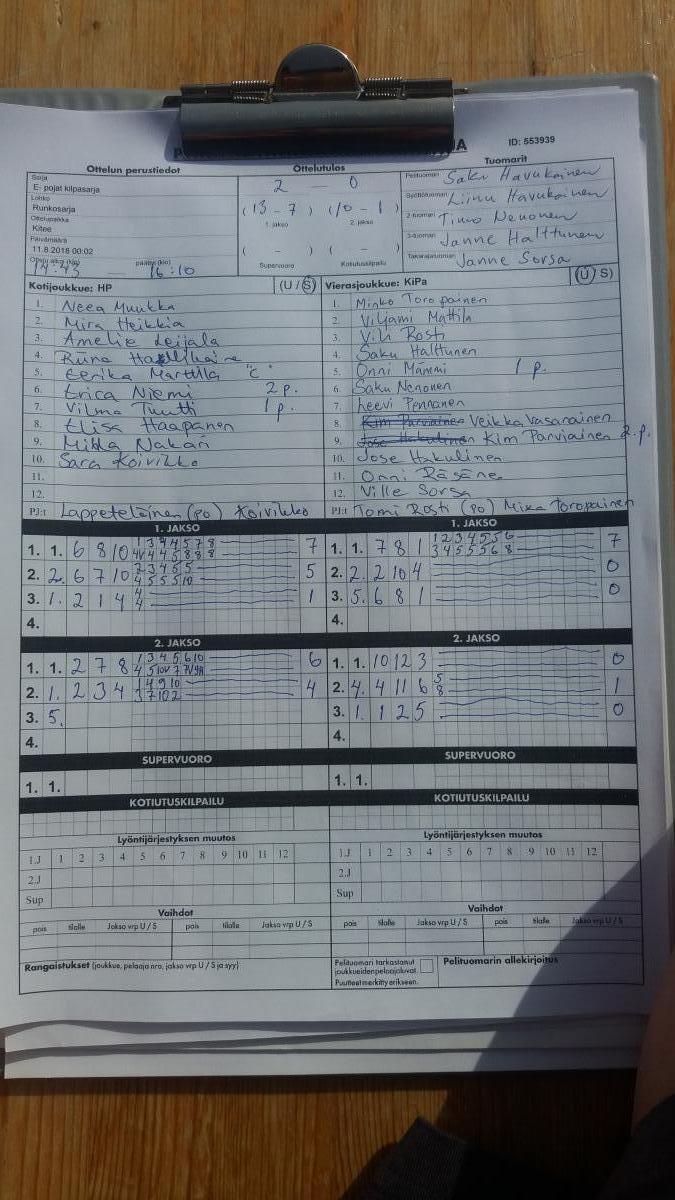 ID: 553939
Ottelun perustiedot
Ottelutulos
Tuomarit
Sarja
E- pojat kilpasarja
Lohko
Runkosarja
Ottelupaikka
Kitee
Päivämäärä
11.8.2018 00:02
Ottelu alkoi (klo) 14:43 päättyi (klo) 16:10
2 – 0
(13 – 7) (10 – 1)
1. jakso 2. jakso
( – ) ( – )
Supervuoro Kotiutuskilpailu
Pelituomari Saku Havukainen
Syöttötuomari Liinu Havukainen
2-tuomari Timo Nenonen
3-tuomari Janne Halttunen
Takarajatuomari Janne Sorsa
Kotijoukkue: HP (U / S)
1. Neea Muukka
2. Mira Heikkiä
3. Amelie Leijala
4.
5. Eerika Marttila "C"
6. Erica Niemi 2 p.
7. Vilma Tuutti 1 p.
8. Elisa Haapanen
9. Miida Nakari
10. Sara Koivikko
11.
12.
PJ:t Lappeteläinen (po) Koivikko
Vierasjoukkue: KiPa (U / S)
1. Minko Toropainen
2. Viljami Mattila
3. Vili Rosti
4. Saku Halttunen
5. Onni Mämmi 1 p.
6. Saku Nenonen
7. Leevi Pennanen
8. Kim Parviainen Veikka Vasarainen
9. Jose Hakulinen Kim Parviainen 2.p.
10. Jose Hakulinen
11. Onni Räsänen
12. Ville Sorsa
PJ:t Tomi Rosti (po) Mika Toropainen
1. JAKSO
1. 1. 6 8 10 7
2. 2. 6 7 10 5
3. 1. 2 1 4 1
4.
1. JAKSO
1. 1. 7 8 1 7
2. 2. 2 10 4 0
3. 5. 6 8 1 0
4.
2. JAKSO
1. 1. 2 7 8 6
2. 1. 2 3 4 4
3. 5.
4.
2. JAKSO
1. 1. 10 12 3 0
2. 4. 4 11 6 5 8 1
3. 1. 1 2 5 0
4.
SUPERVUORO
1. 1.
SUPERVUORO
1. 1.
KOTIUTUSKILPAILU
KOTIUTUSKILPAILU
Lyöntijärjestyksen muutos
1.J 1 2 3 4 5 6 7 8 9 10 11 12
2.J
Sup
Lyöntijärjestyksen muutos
1.J 1 2 3 4 5 6 7 8 9 10 11 12
2.J
Sup
Vaihdot
pois tilalle Jakso vrp U / S pois tilalle Jakso vrp U / S
Vaihdot
pois tilalle Jakso vrp U / S pois tilalle Jakso vrp U / S
Rangaistukset (joukkue, pelaaja nro, jakso vrp U / S ja syy)
Pelituomari tarkastanut
joukkueiden pelaajaluvat.
Puutteet merkitty erikseen.
Pelituomarin allekirjoitus